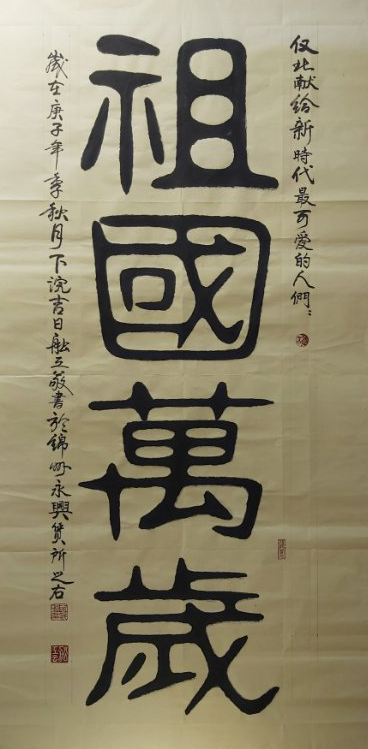 仅此献给新時代最可愛的人們
祖國萬歲
歲在庚子年季秋月下浣吉日敬書於錦州永興賃所之右